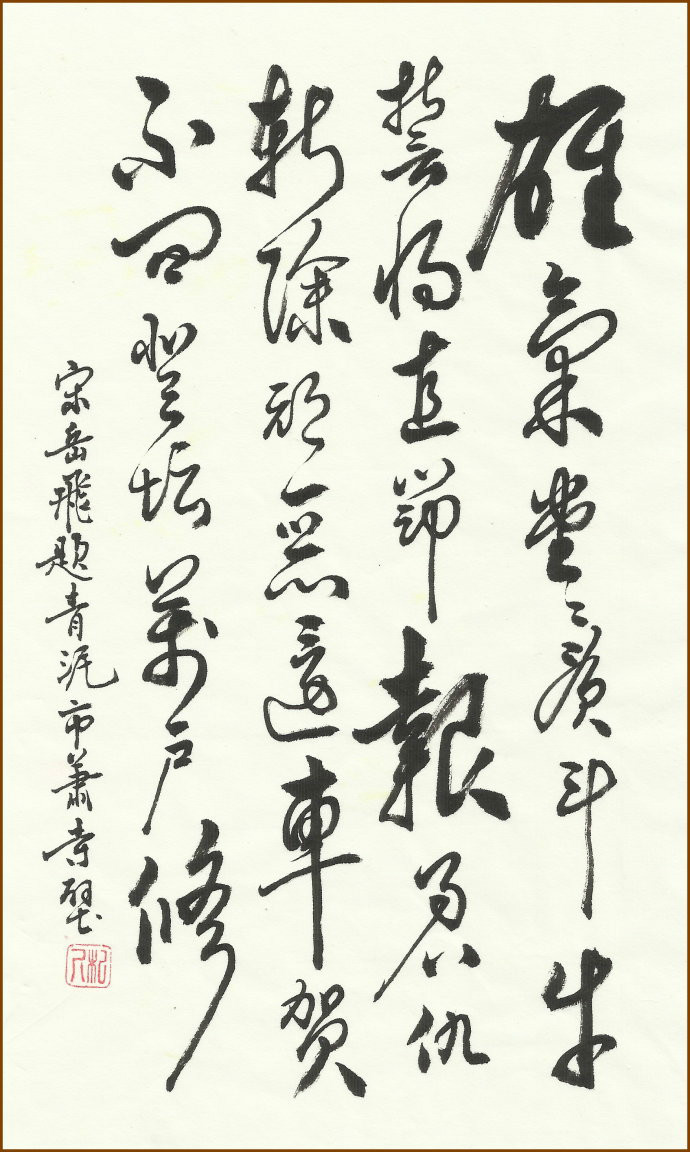 雄氣堂〻貫斗牛
誓將直節報君仇
斬除頑惡還車賀
不問登坛萬戶修
宋岳飛題青泥市蕭寺壁